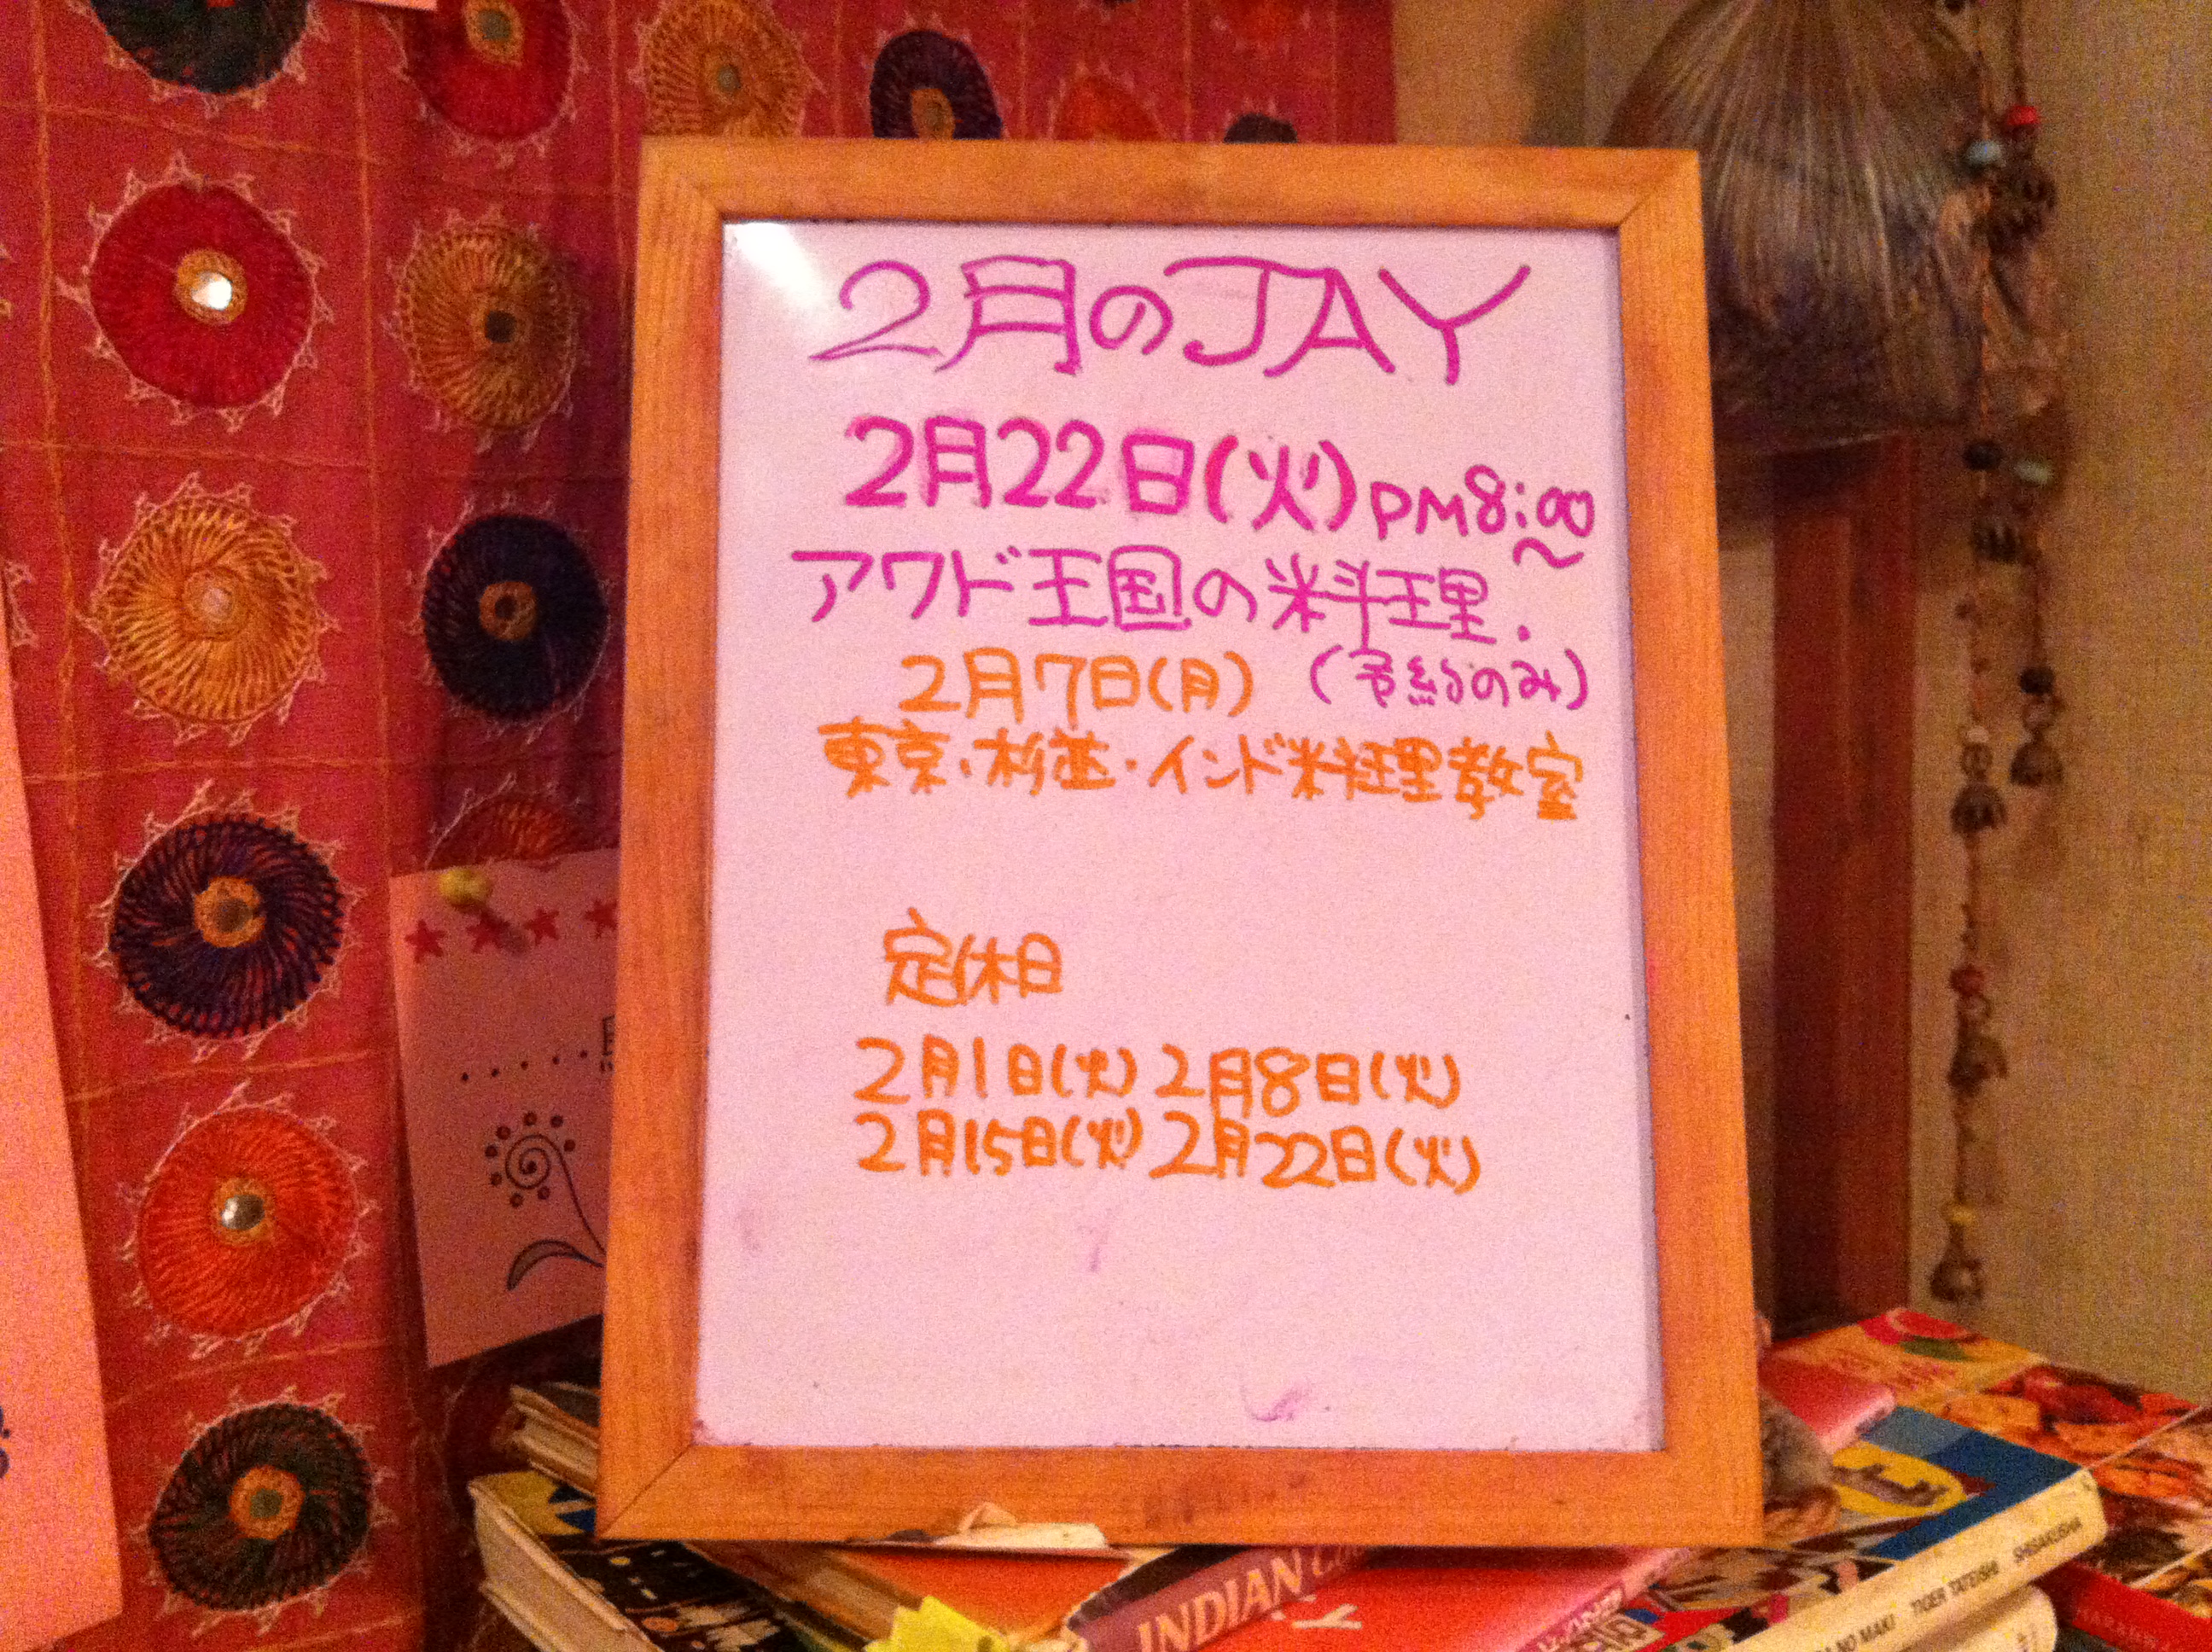 2月のJAY
2月22日(火)PM8:00〜
アワド王国の料理.
(予約のみ)
2月7日(月)
東京・杉並・インド料理教室
定休日
2月1日(火) 2月8日(火)
2月15日(火) 2月22日(火)
INDIAN
NO MAKI TIGER TATEISHI SHISAKUSHA